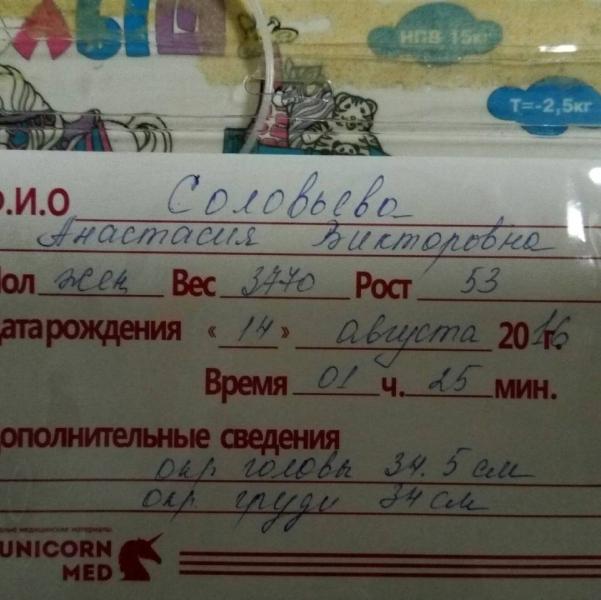 НПВ 15кг
Т=-2,5кг
.И.О Соловьева
Анастасия Викторовна
Пол жен Вес 3770 Рост 53
Дата рождения «14» августа 2016 г.
Время 01 ч. 25 мин.
Дополнительные сведения
окр. головы 34.5 см
окр. груди 34 см
медицинские материалы
UNICORN
MED